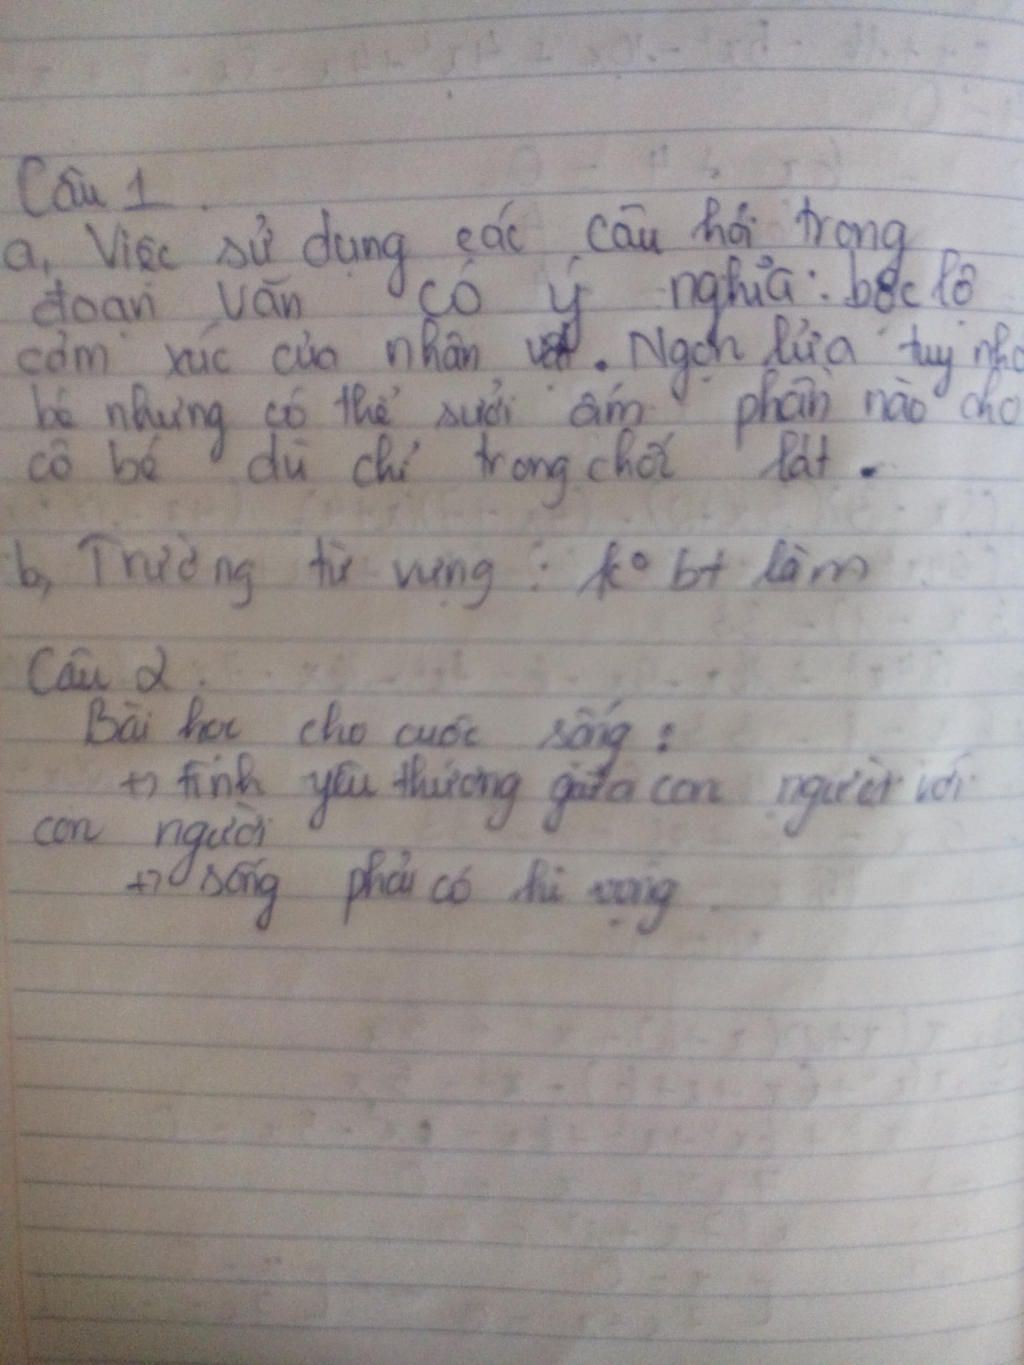 Câu 1.
a, Việc sử dụng các câu hỏi trong
đoạn văn có ý nghĩa: bộc lộ
cảm xúc của nhân vật. Ngọn lửa tuy nhỏ
bé nhưng có thể sưởi ấm phần nào cho
cô bé dù chỉ trong chốc lát.
b, Trường từ vựng: k° bt làm
Câu 2.
Bài học cho cuộc sống:
+, tình yêu thương giữa con người với
con người
+, sống phải có hi vọng.